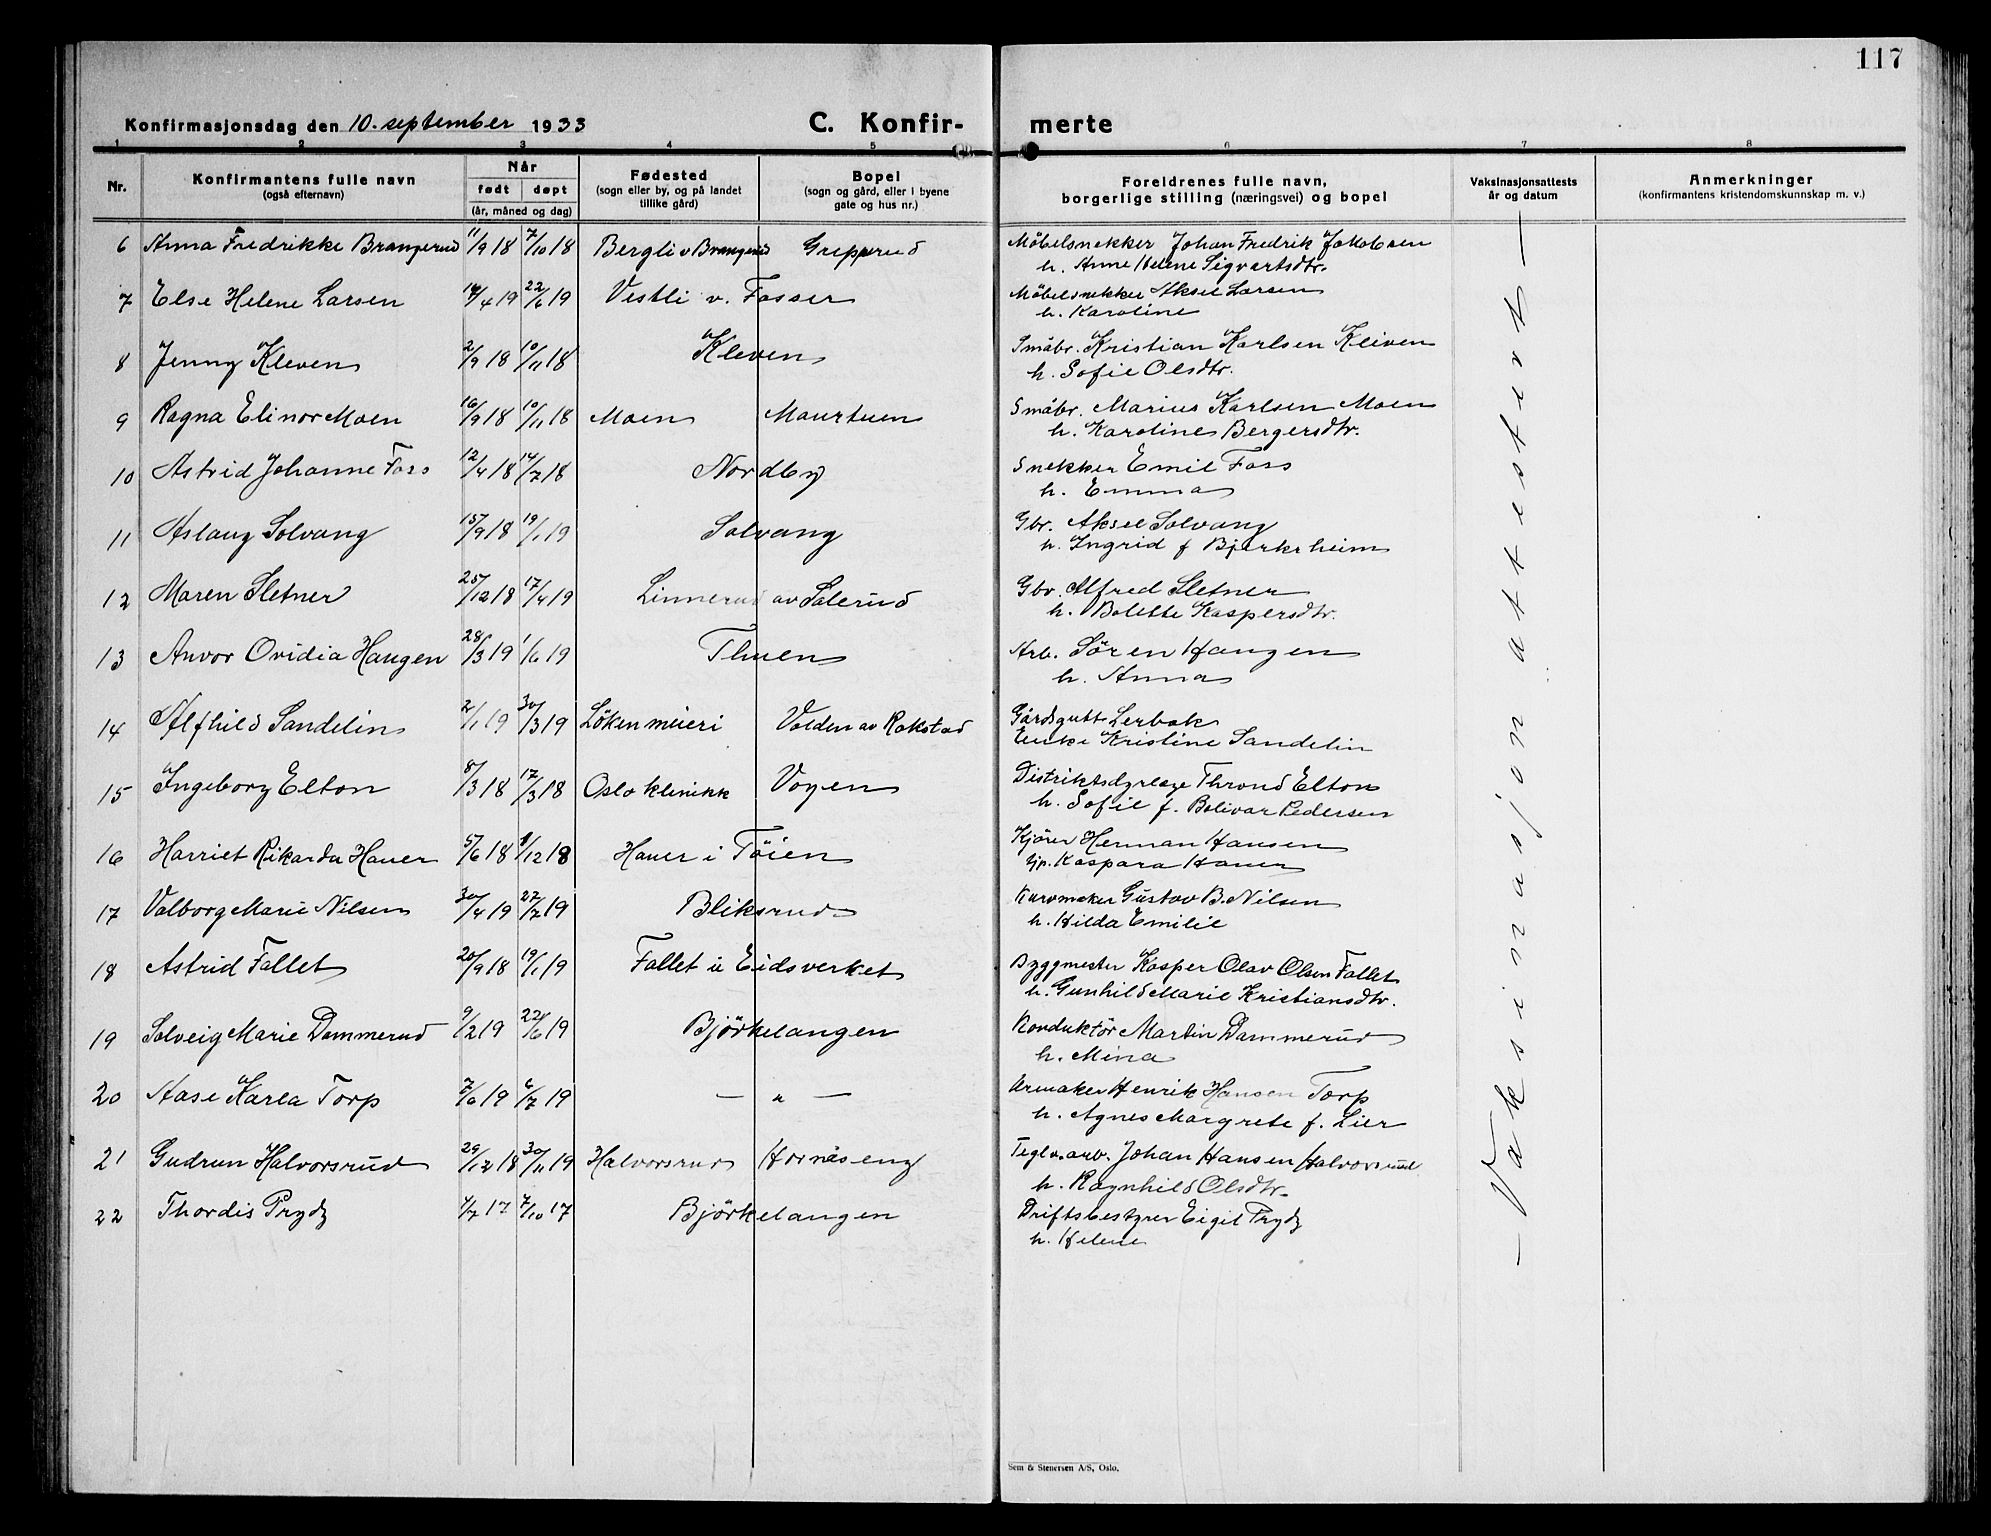 117
Konfirmasjonsdag den 10. september 1933 C. Konfir- merte
1 2 3 4 5 6 7 8
Nr. Konfirmantens fulle navn (også efternavn) Når født døpt (år, måned og dag) Fødested (sogn eller by, og på landet tillike gård) Bopel (sogn og gård, eller i byene gate og hus nr.) Foreldrenes fulle navn, borgerlige stilling (næringsvei) og bopel Vaksinasjonsattests år og datum Anmerkninger (konfirmantens kristendomskunnskap m. v.)
6 Anna Fredrikke Brangerud 11/9 18 7/10 18 Bergli v Brangerud Grepperud Möbelsnekker Johan Fredrik Jakobsen
h. Anne Helene Sigvartsdtr.
7 Else Helene Larsen 14/4 19 22/6 19 Vestli v. Fosser Möbelsnekker Aksel Larsen
h. Karoline
8 Jenny Kleven 2/9 18 10/11 18 Kleven Småbr. Kristian Karlsen Kleven
h. Sofie Olsdtr.
9 Ragna Elinor Moen 16/9 18 10/11 18 Moen Maurtuen Småbr. Marius Karlsen Moen
h. Karoline Bergersdtr.
10 Astrid Johanne Foss 12/4 18 14/7 18 Nordby Snekker Emil Foss
h. Emma
11 Aslaug Solvang 15/9 18 19/1 19 Solvang Gbr. Aksel Solvang
h. Ingrid f Bjerkeheim
12 Maren Sletner 25/12 18 17/4 19 Linnerud av Salerud Gbr. Alfred Sletner
h. Bolette Kaspersdtr.
13 Anvor Ovidia Haugen 28/3 19 1/6 19 Thuen Arb. Sören Haugen
h. Anna
14 Alfhild Sandelin 2/1 19 30/3 19 Löken meieri Volden av Rakstad Gårdsgutt Lerbak
Enke Kristine Sandelin
15 Ingeborg Elton 8/3 18 17/3 18 Oslo klinikk Voyen Distriktsdyrlæge Thrond Elton
h. Sofie f. Bolivar Pedersen
16 Harriet Rikarda Haner 5/6 18 1/12 18 Haner i Töien Kjörer Herman Hansen
tjp. Kaspara Haner
17 Valborg Marie Nilsen 30/4 19 27/7 19 Bliksrud Kurvmaker Gustav B. Nilsen
h. Hilda Emilie
18 Astrid Fallet 20/9 18 19/1 19 Fallet u Eidsverket Byggmester Kasper Olav Olsen Fallet
h. Gunhild Marie Kristiansdtr.
19 Solveig Marie Dammerud 9/2 19 22/6 19 Björkelangen Konduktör Martin Dammerud
h. Mina
20 Aase Karla Torp 7/6 19 6/7 19 — " — Urmaker Henrik Hansen Torp
h. Agnes Margrete f. Lier
21 Gudrun Halvorsrud 29/12 18 30/11 19 Halvorsrud Hornåseng Teglv.arb. Johan Hansen Halvorsrud
h. Ragnhild Olsdtr.
22 Thordis Prydz 4/7 17 7/10 17 Björkelangen Driftsbestyrer Eigil Prydz
h. Helene
— Vaksinasjon attestert —
Sem & Stenersen A/S, Oslo.